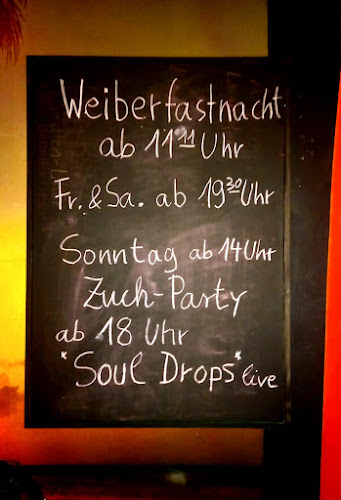 Weiberfastnacht
ab 11¹¹ Uhr
Fr. & Sa. ab 19³⁰ Uhr
Sonntag ab 14 Uhr
Zuch-Party
ab 18 Uhr
"Soul Drops" live